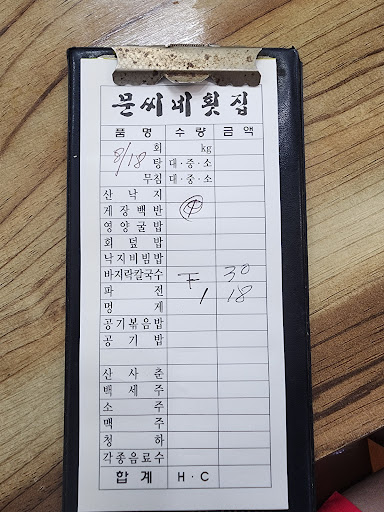 문씨네횟집
품명 수량 금액
8/18 회 kg
탕 대·중·소
무침 대·중·소
산낙지
게장백반 ④
영양굴밥
회덮밥
낙지비빔밥
바지락칼국수 30
파전 1 18
멍게
공기볶음밥
공기밥
산사춘
백세주
소주
맥주
청하
각종음료수
합계 H·C